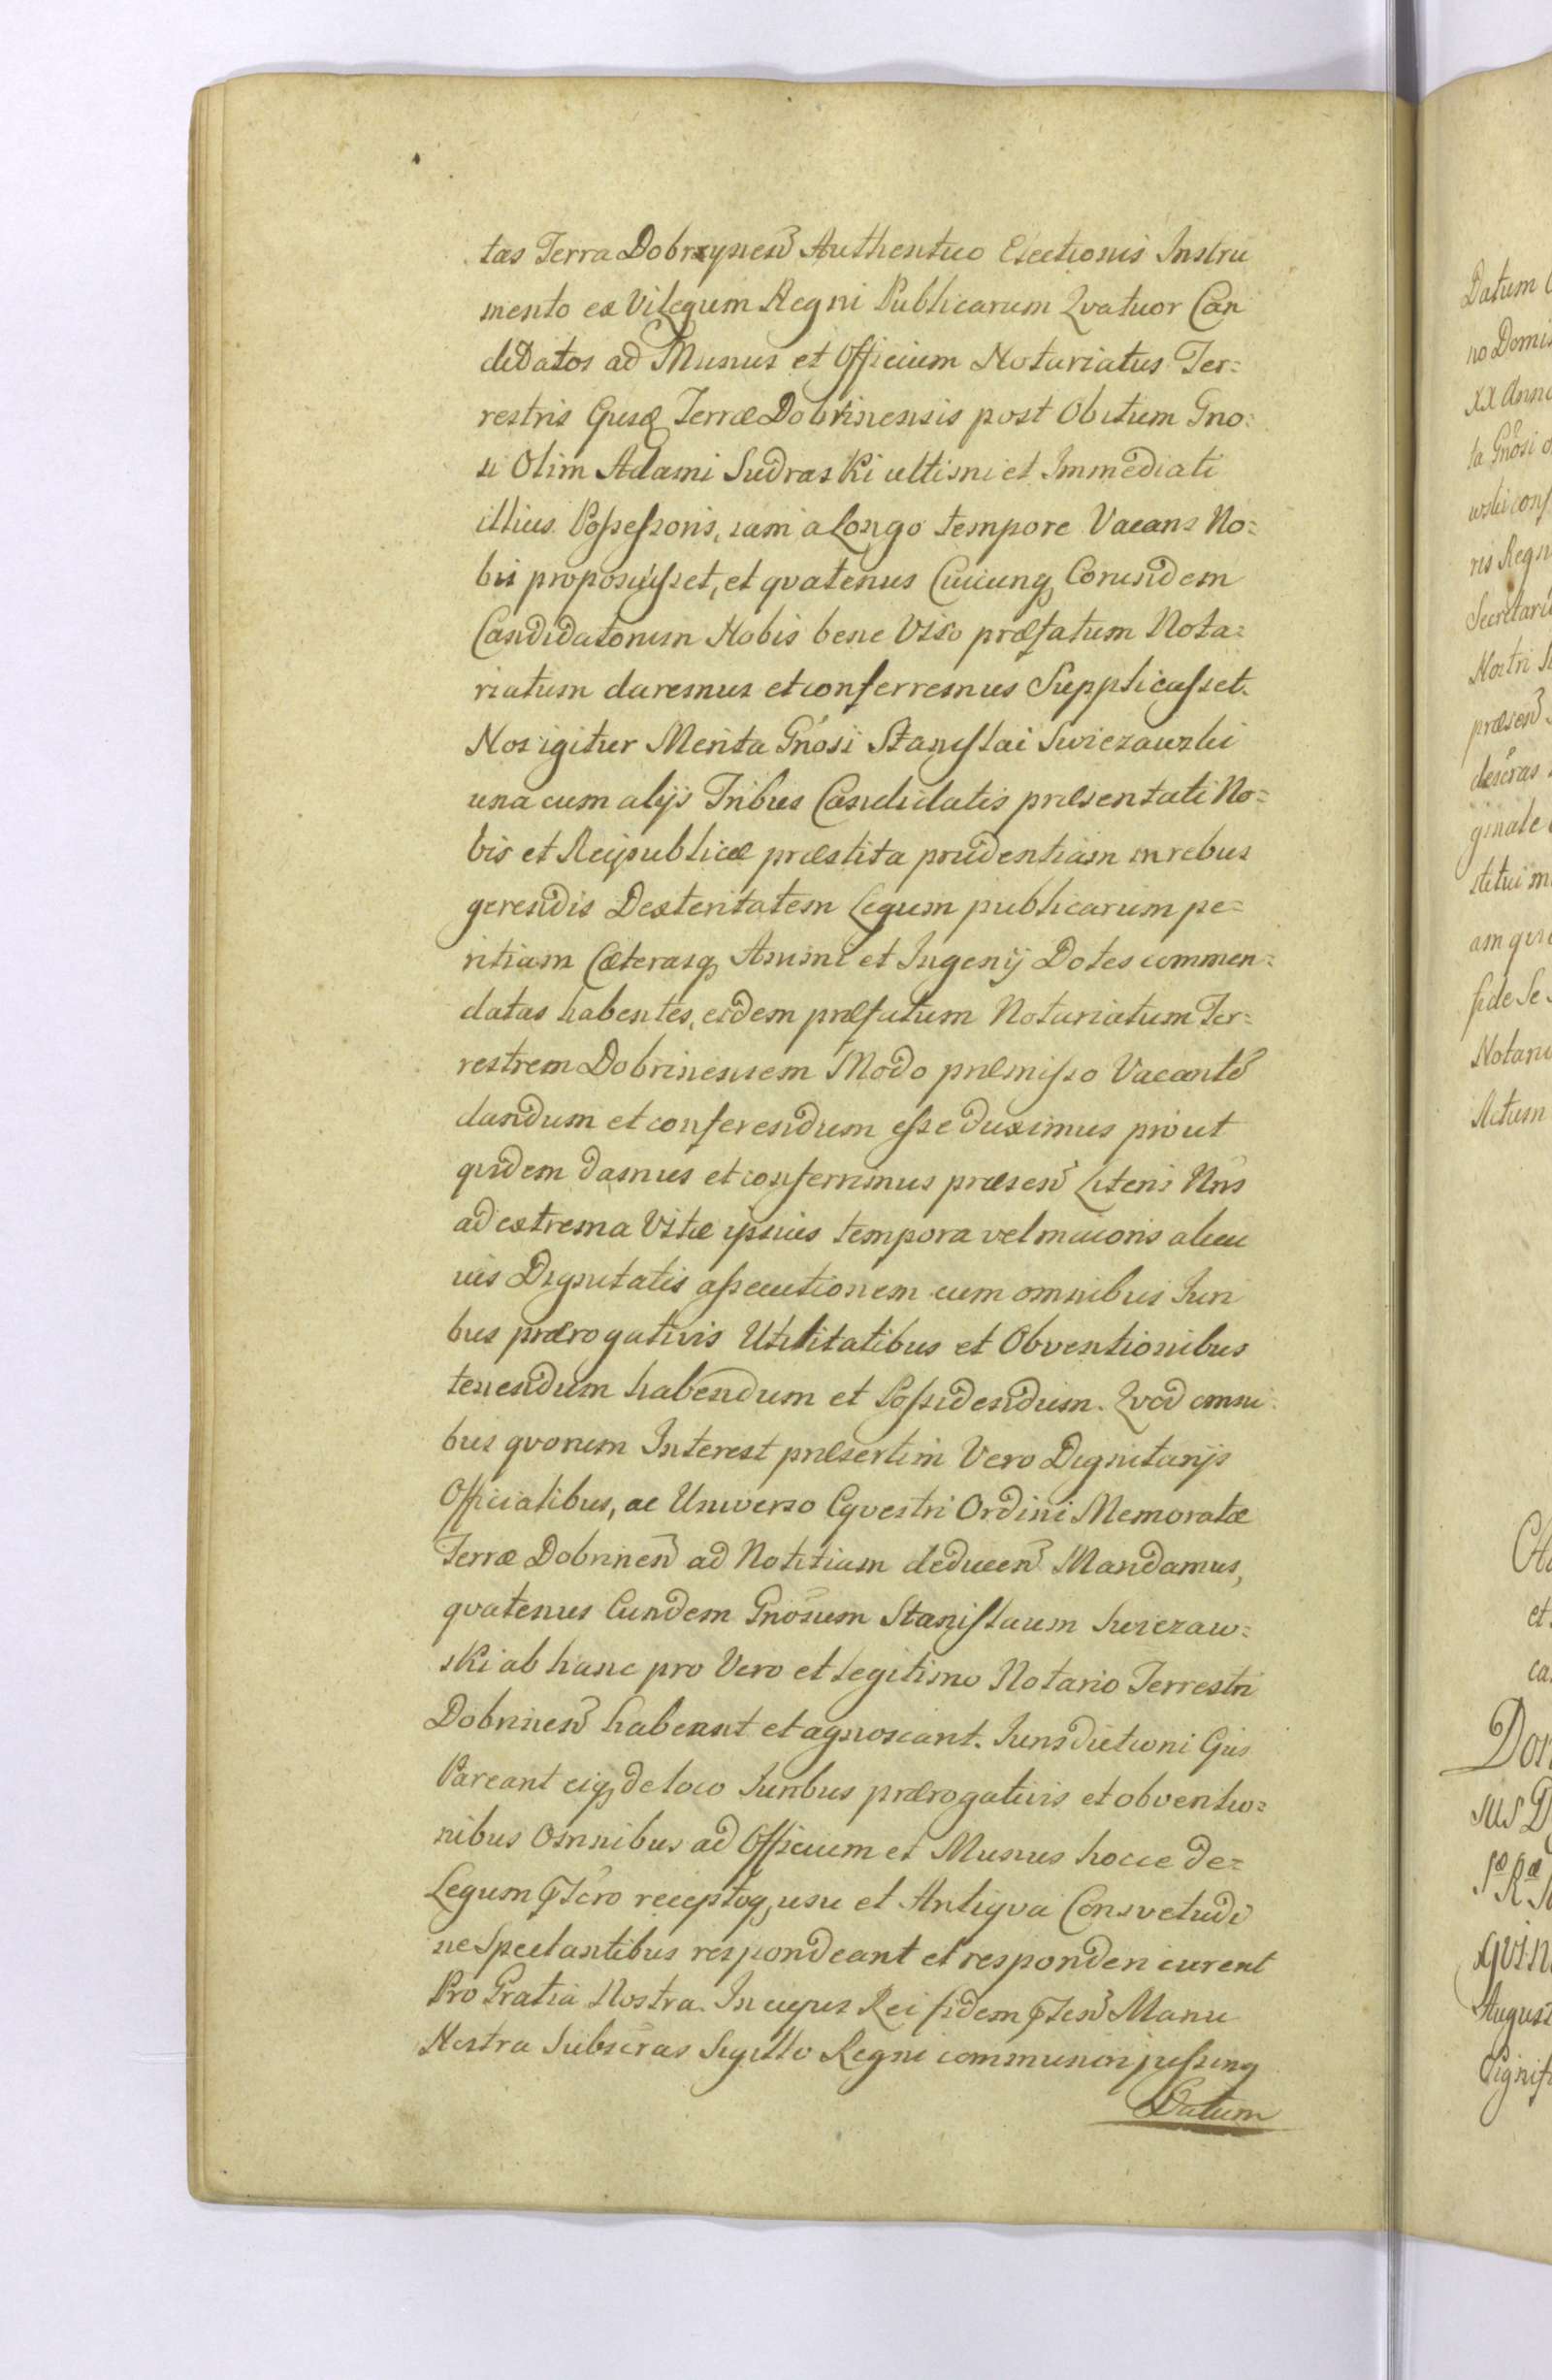 tas Terra Dobrzynen̄ Authentico Electionis Instru
mento ex Vi Legum Regni Publicarum Qvatuor Can
didatos ad Munus et Officium Notariatus Ter=
restris Ejusq Terræ Dobrinensis post Obitum Gno=
si Olim Adami Sudraski ultimi et Immediati
illius Possessoris, iam a Longo tempore Vacans No=
bis proposuisset, et qvatenus Cuicunq Eorundem
Candidatorum Nobis bene Viso præfatum Nota=
riatum daremus et conferremus Supplicasset.
Nos igitur Merita Gnosi Stanislai Swiezawski
una cum alijs Tribus Candidatis præsentati No=
bis et Reipublicæ præstita prudentiam in rebus
gerendis Dexteritatem Legum publicarum pe=
ritiam Cæterasq Animi et Ingenij Dotes commen=
datas habentes, eidem præfatum Notariatum Ter=
restrem Dobrinensem Modo præmisso Vacantē
dandum et conferendum esse duximus prout
qvidem damus et conferrimus præsen̄ Literis Nris
ad extrema Vitæ ipsius tempora vel maioris alicu
ius Dignitatis assecutionem cum omnibus Juri
bus prærogativis Utilitatibus et Obventionibus
tenendum habendum et Possidendum. Qvod omni=
bus qvorum Interest præsertim Vero Dignitarijs
Officialibus, ac Universo Eqvestri Ordini Memoratæ
Terræ Dobrinen̄ ad Notitiam deducen̄ Mandamus,
qvatenus Eundem Gnosum Stanislaum Swiezaw=
ski ab hanc pro Vero et legitimo Notario Terrestri
Dobrinen̄ habeant et agnoscant. Jurisdictioni Ejus
Pareant eiq de loco Juribus prærogativis et obventio=
nibus Omnibus ad Officium et Munus hocce de=
Legum pscro receptoq usu et Antiqva Consvetudi
ne Spectantibus respondeant et responderi curent
Pro Gratia Nostra. In cujus Rei fidem psen̄ Manu
Nostra Subscras Sigillo Regni communiri jussimq
Datum
Datum
no Domi
XX Anno
ta Gnosi
wski conf
ris Regn
Secretari
Nostri
præsen̄
descras
ginale
stitui m
am qvi
fide Se
Notari
Actum
et
ca
Do
sus D
qvin
August
Signif